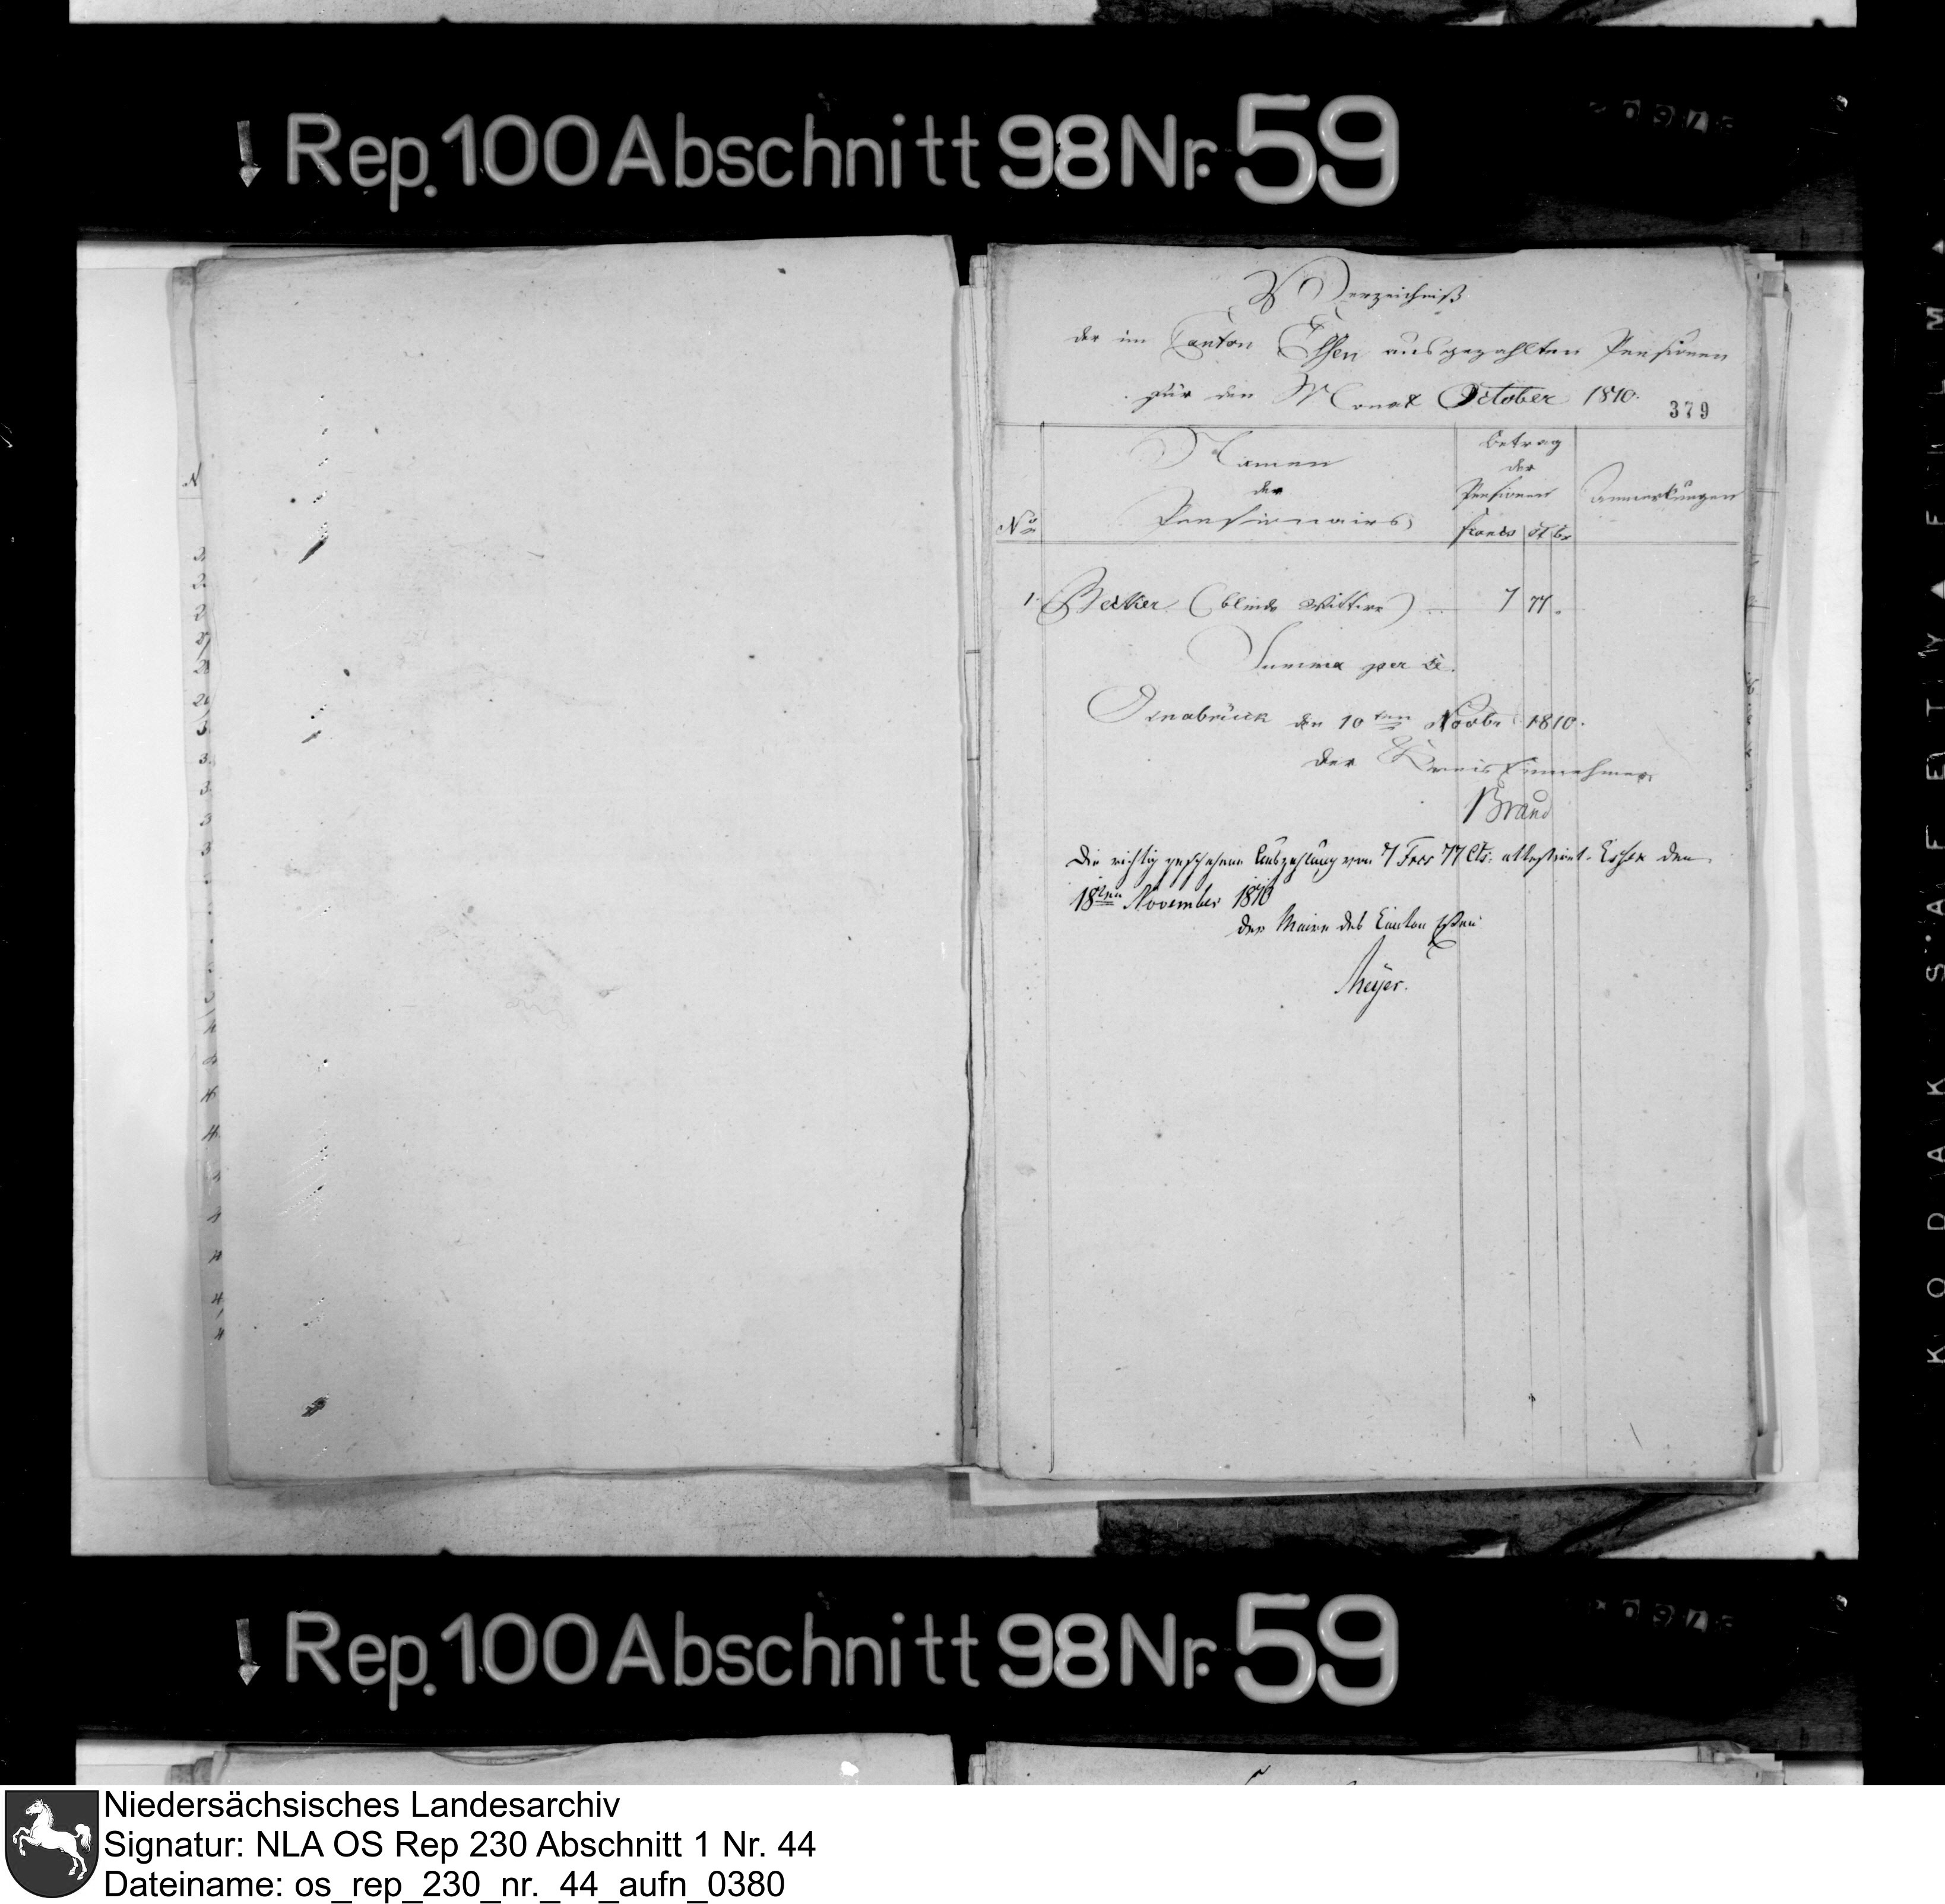 Rep. 100 Abschnitt 98 Nr. 59
Verzeichniß
der im Canton Essen ausgezahlten Pensionen
für den Monat October 1810.
379
No
Namen
der
Pensionairs
Betrag
der
Pensionen
Francs
Ct
Anmerkungen
1. Becker (blinde Wittwe) 7 77.
Summa per se.
Osnabrück den 10ten Novbr 1810.
Der Kreis Einnehmer
Brand
Die richtig geschehene Auszahlung von 7 Frcs 77 Cts. attestirt. Essen den
18ten November 1810
der Maire des Canton Essen
Meyer.
Rep. 100 Abschnitt 98 Nr. 59
KODAK SAFETY FILM
Niedersächsisches Landesarchiv
Signatur: NLA OS Rep 230 Abschnitt 1 Nr. 44
Dateiname: os_rep_230_nr._44_aufn_0380